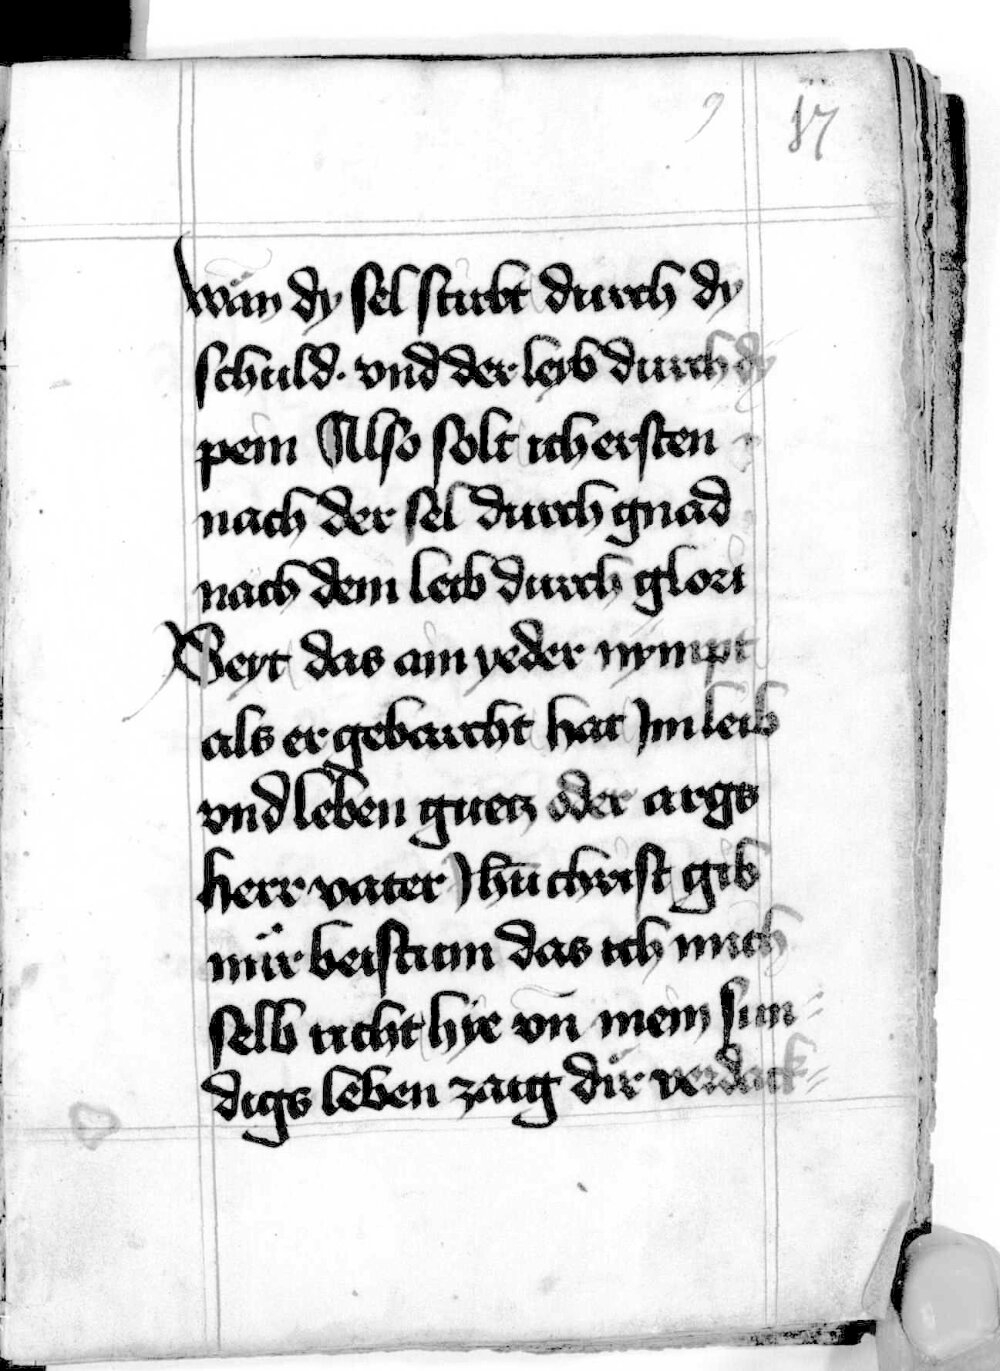 9 17
wañ dy sel stirbt durch dy
schuld. vnd der leyb durch dy
pein Also solt ich ersten
nach der sel durch gnad
nach dem leib durch glori
Seyt das ain yeder nympt
als er gebarcht hat Jm leib
vnd leben guetz oder args
herr vater Jhū christ gib
mir beistum das ich mich
selb richt hye vn̄ mein sun⸗
digs leben zaig dir verdack⸗